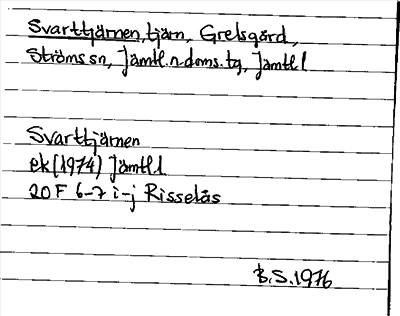 Svarttjärnen, tjärn, Grelsgård,
Ströms sn, Jämtl.n.doms.tg, Jämtl l
Svarttjärnen
ek (1974) Jämtl l
20 F 6-7 i-j Risselås
B.S. 1976